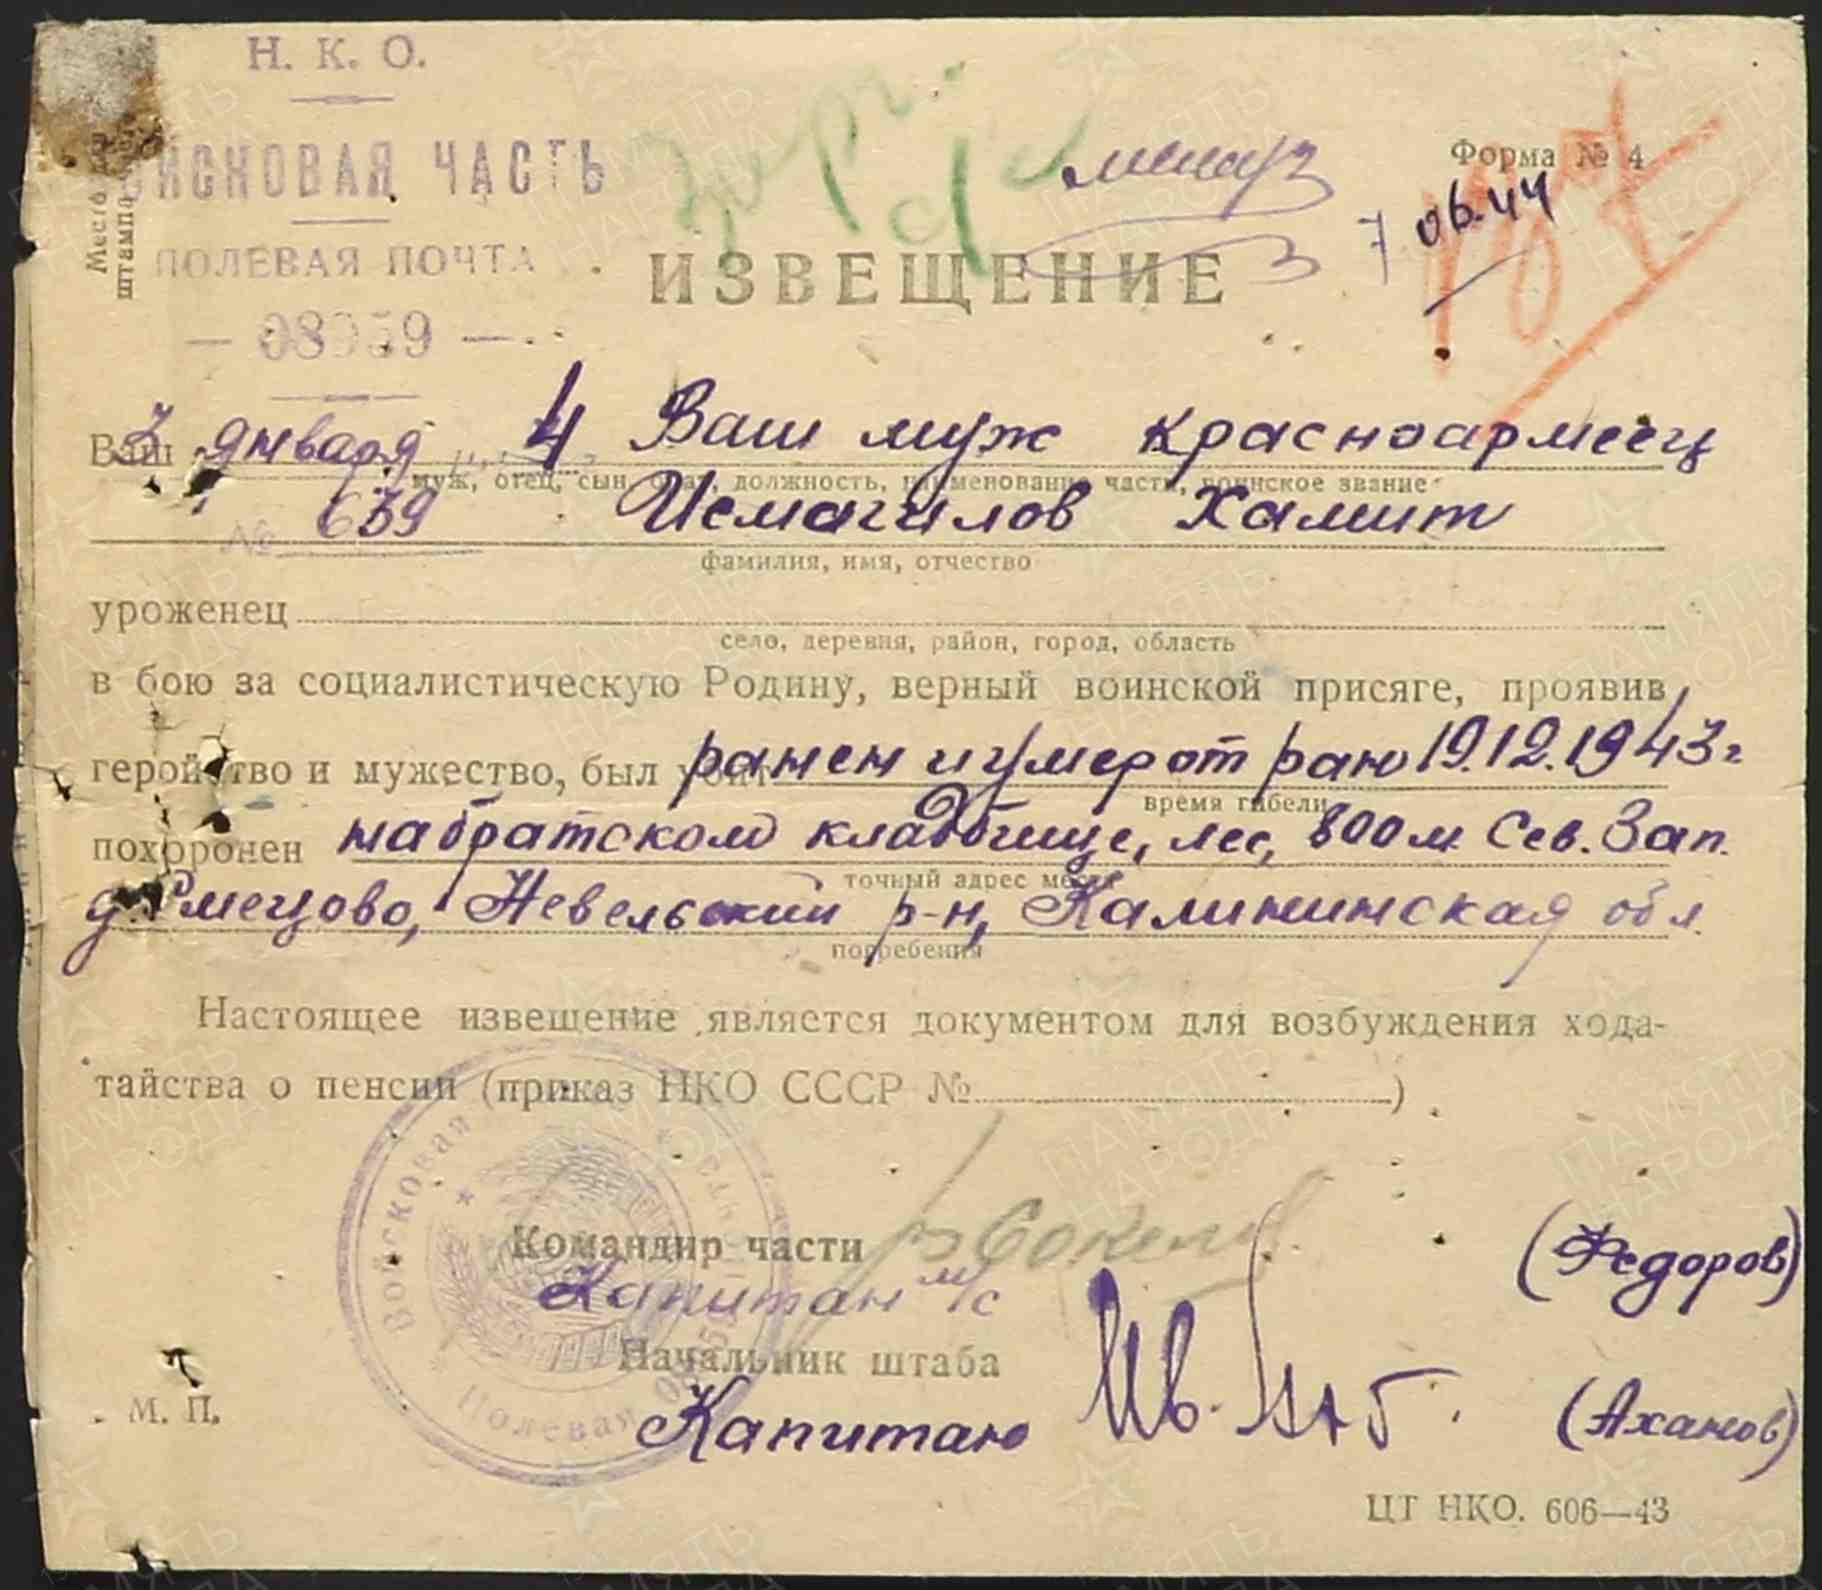 Н. К. О.
ВОЙСКОВАЯ ЧАСТЬ
ПОЛЕВАЯ ПОЧТА
Место для
штампа
Форма № 4
7 06.44
ИЗВЕЩЕНИЕ
Ваш 3 января 44 Ваш муж красноармеец
муж, отец, сын, брат, должность, наименование части, воинское звание
№ 639 Исмагилов Хамит
фамилия, имя, отчество
уроженец
село, деревня, район, город, область
в бою за социалистическую Родину, верный воинской присяге, проявив
геройство и мужество, был убит ранен и умер от ран 19.12.1943 г
время гибели
похоронен на братском кладбище, лес, 800 м Сев. Зап.
точный адрес места
д. Смецово, Невельский р-н, Калининская обл.
погребения
Настоящее извещение является документом для возбуждения хода-
тайства о пенсии (приказ НКО СССР № )
Войсковая часть
Полевая
Командир части
Капитан м/с (Федоров)
Начальник штаба
Капитан (Аханов)
М. П.
ЦТ НКО. 606—43
ПАМЯТЬ НАРОДА